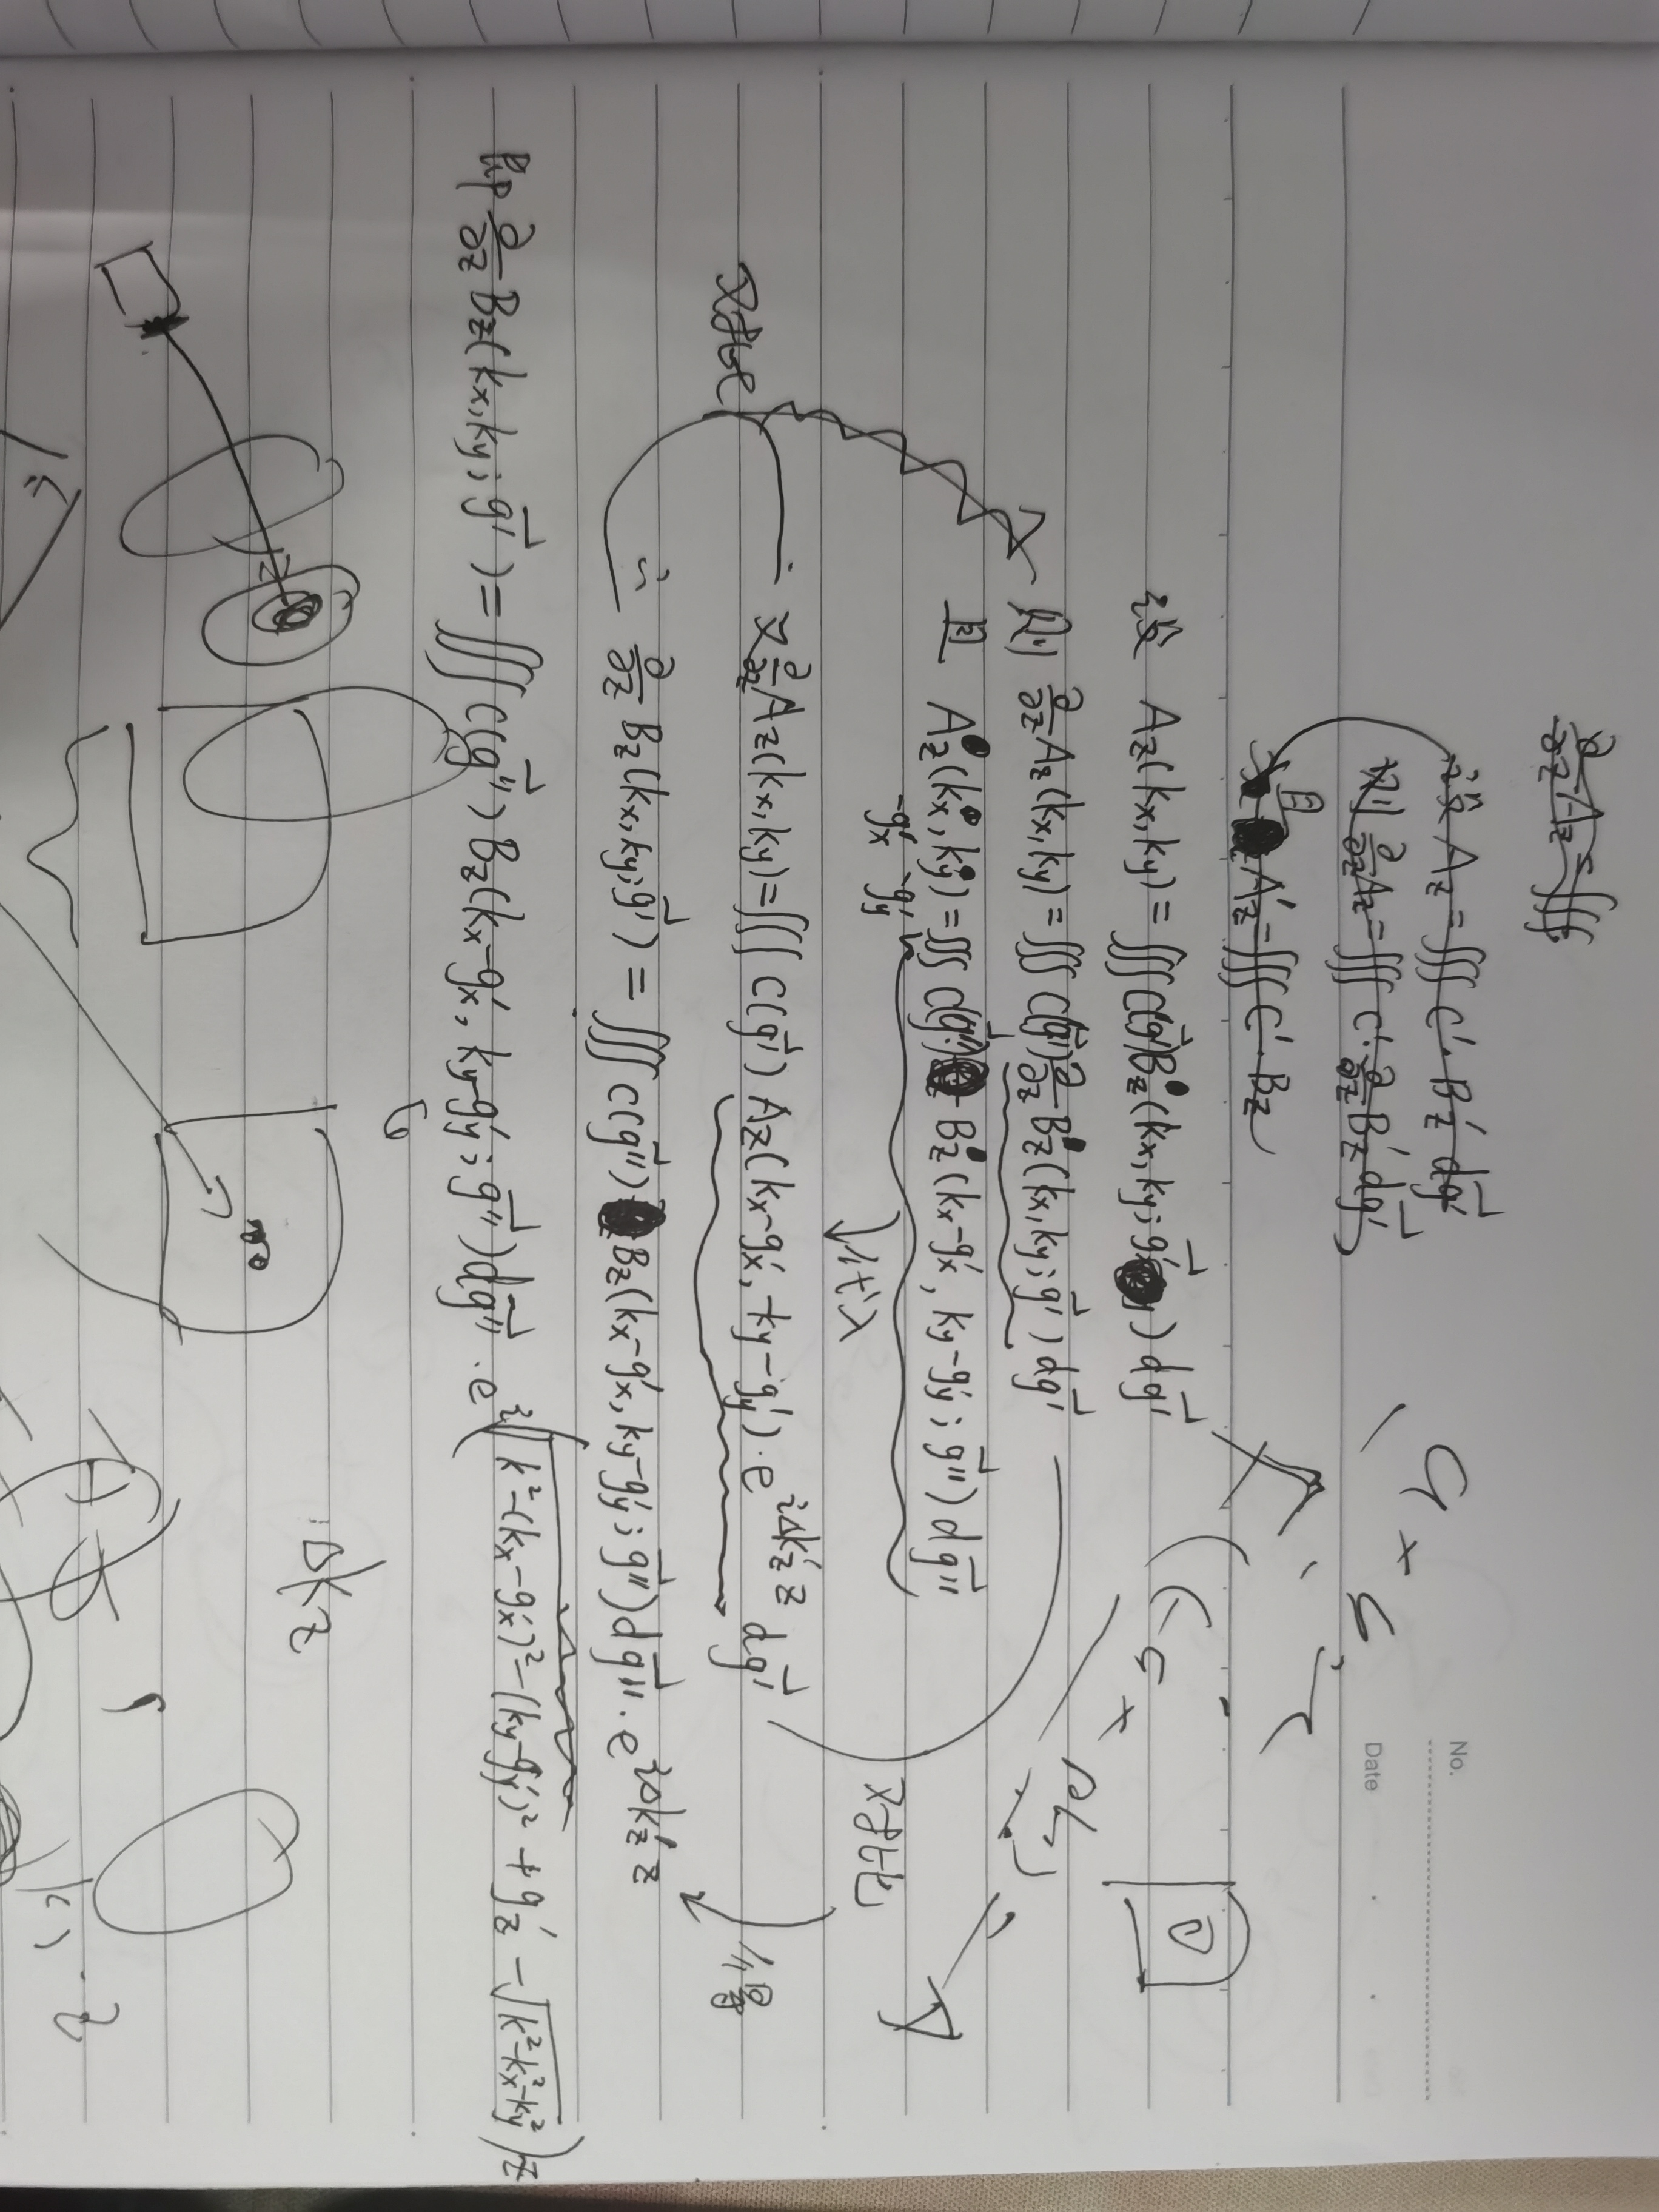 ∂/∂z A_z = ∭
设 A_z = ∭ C'· B_z' dg⃗'
则 ∂/∂z A_z = ∭ C'· ∂/∂z B_z' dg⃗'
且 A_z' = ∭ C'· B_z
No.
Date
设 A_z(k_x, k_y) = ∭ C(g⃗') B_z(k_x, k_y; g⃗') dg⃗'
则 ∂/∂z A_z(k_x, k_y) = ∭ C(g⃗') ∂/∂z B_z(k_x, k_y; g⃗') dg⃗'
且 A_z(k_x, k_y) = ∭ C(g⃗'') B_z(k_x-g_x', k_y-g_y'; g⃗'') dg⃗''
-g_x' -g_y'
↓代入
对比
又 ∂/∂z A_z(k_x, k_y) = ∭ C(g⃗') A_z(k_x-g_x', -k_y-g_y') · e^{iΔk_z' z} dg⃗'
对比
得
∴ ∂/∂z B_z(k_x, k_y; g⃗') = ∭ C(g⃗'') B_z(k_x-g_x', k_y-g_y'; g⃗'') dg⃗'' · e^{iΔk_z' z}
即 ∂/∂z B_z(k_x, k_y; g⃗') = ∭ C(g⃗'') B_z(k_x-g_x', k_y-g_y'; g⃗'') dg⃗'' · e^{i(√(k²-(k_x-g_x')²-(k_y-g_y')²) + g_z' - √(k²-k_x²-k_y²))z}
Δk_z